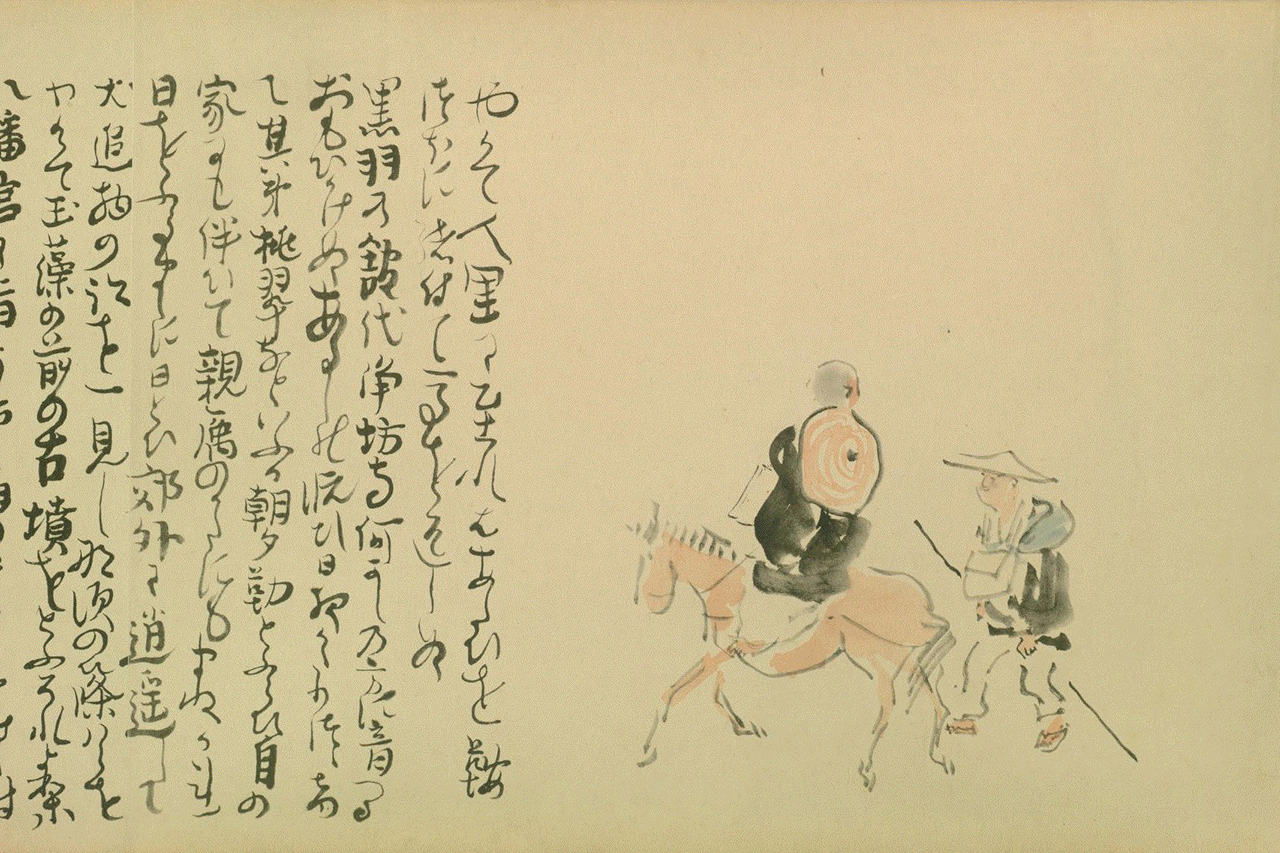 やかて人里に至れはあたひを鞍
つほに結付て馬を返しぬ
黒羽の館代浄坊寺何かしの方に音つる
おもひかけぬあるしの悦ひ日夜かたりつゝけ
て其弟桃翠なといふか朝夕勤とふらひ自の
家にも伴ひて親属のかたにもまねかれ
日をふるまゝに日とひ郊外に逍遥して
犬追物の跡を一見し那須の篠はらを
わけて玉藻の前の古墳をとふそれより
八幡宮に詣